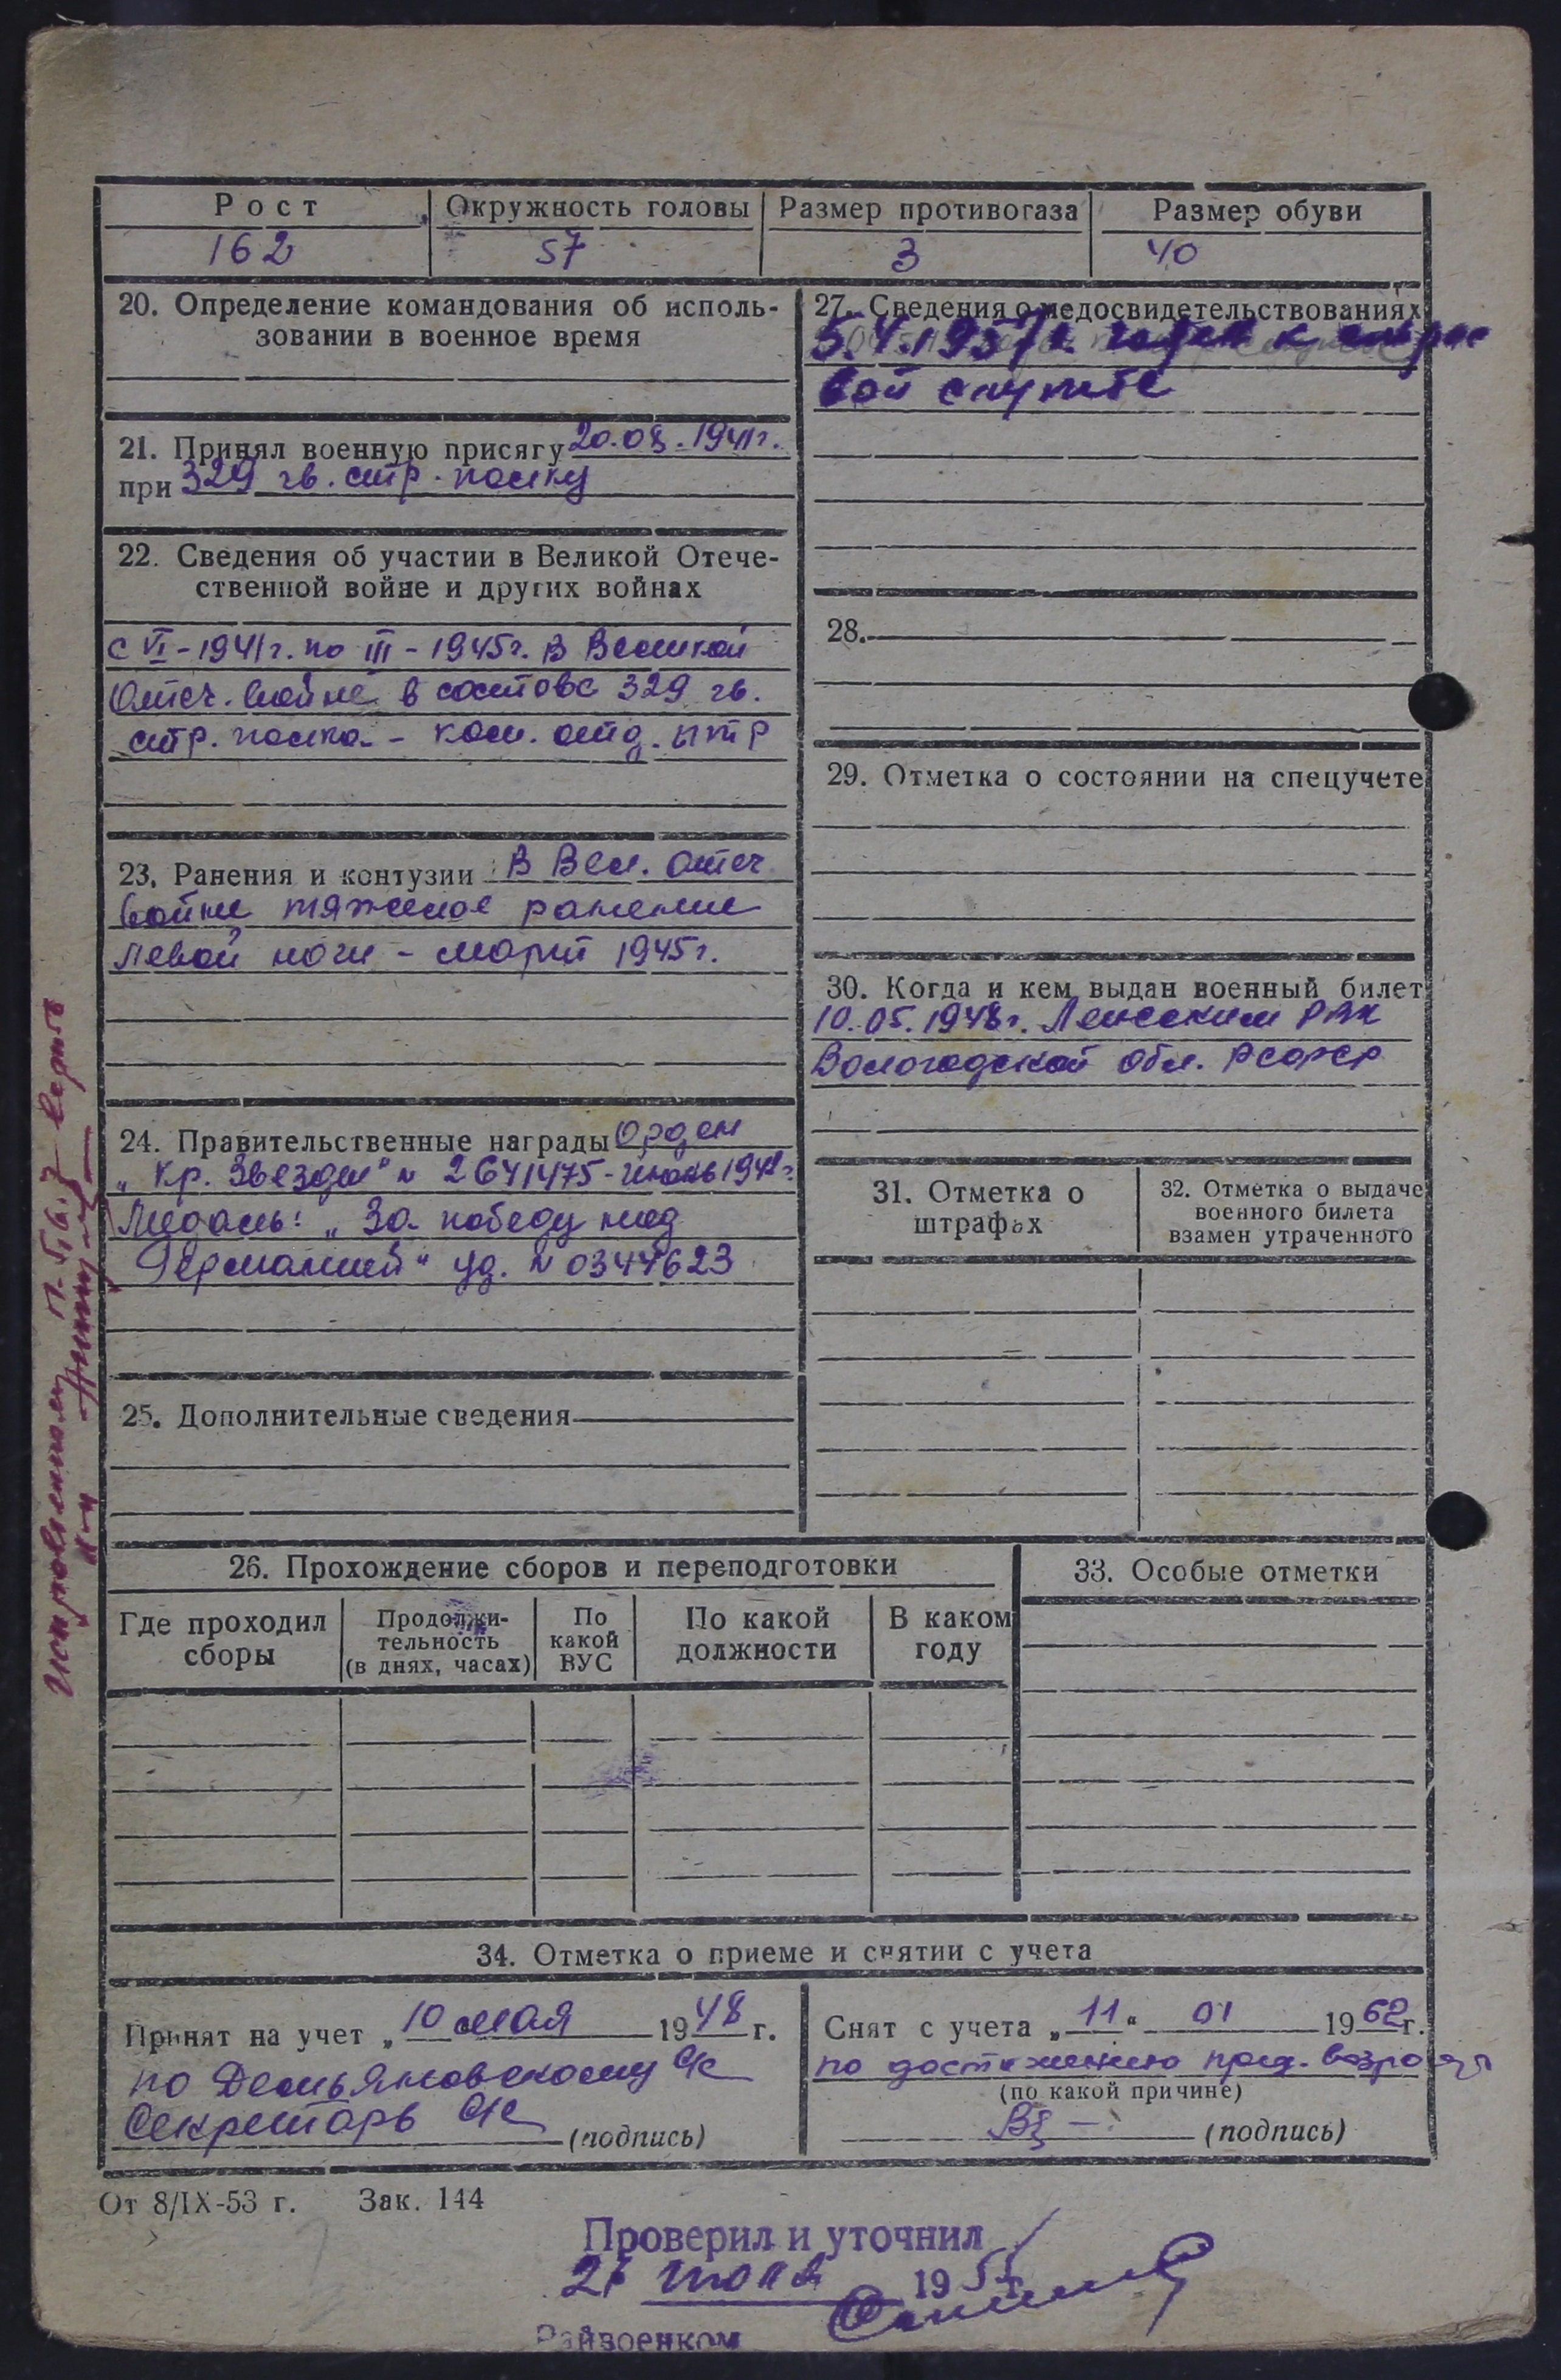 Рост
Окружность головы
Размер противогаза
Размер обуви
162
57
3
40
20. Определение командования об исполь-
зовании в военное время
21. Принял военную присягу 20.08.1941г.
при 329 гв. стр. полку
22. Сведения об участии в Великой Отече-
ственной войне и других войнах
с VI-1941г. по III-1945г. в Великой
Отеч. войне в составе 329 гв.
стр. полка - ком. отд. ПТР
23. Ранения и контузии В Вел. Отеч
войне тяжелое ранение
левой ноги - март 1945г.
24. Правительственные награды Орден
„Кр. Звезды" № 2641475 -
Медаль: „За победу над
Германией" уд. № 0344623
25. Дополнительные сведения
27. Сведения о медосвидетельствованиях
5.4.1957г. годен к строе
вой службе
28.
29. Отметка о состоянии на спецучете
30. Когда и кем выдан военный билет
10.05.1948г. Ленским РВК
Вологодской обл. РСФСР
31. Отметка о
штрафах
32. Отметка о выдаче
военного билета
взамен утраченного
26. Прохождение сборов и переподготовки
Где проходил
сборы
Продолжи-
тельность
(в днях, часах)
По
какой
ВУС
По какой
должности
В каком
году
33. Особые отметки
34. Отметка о приеме и снятии с учета
Принят на учет „10 мая 1948 г.
по Демьяновскому с/с
Секретарь с/с (подпись)
Снят с учета „11" 01 1962г.
по достижению пред. возраста
(по какой причине)
(подпись)
От 8/IX-53 г. Зак. 144
Проверил и уточнил
июля 195
Райвоенком
Исправленному п. 5, 6, 7 верить